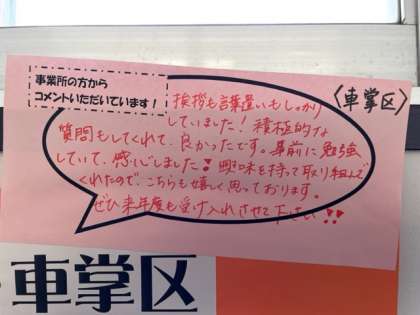 事業所の方から
コメントいただいています！
〈車掌区〉
挨拶も言葉遣いもしっかり
していました！積極的な
質問もしてくれて、良かったです。事前に勉強
していて、感心しました！興味を持って取り組んで
くれたので、こちらも嬉しく思っております。
ぜひ来年度も受け入れさせて下さい!!
車掌区